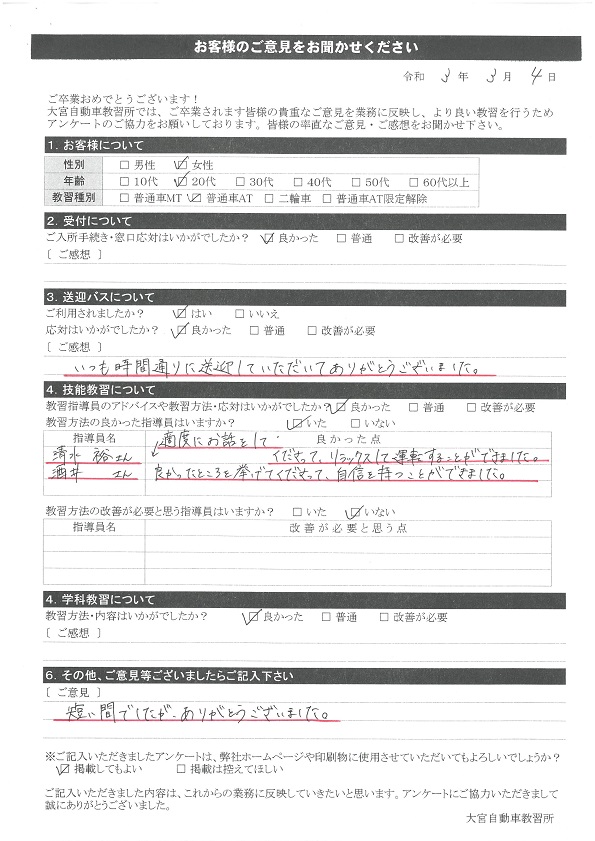 お客様のご意見をお聞かせください
令和 3 年 3 月 4 日
ご卒業おめでとうございます！
大宮自動車教習所では、ご卒業されます皆様の貴重なご意見を業務に反映し、より良い教習を行うため
アンケートのご協力をお願いしております。皆様の率直なご意見・ご感想をお聞かせ下さい。
1. お客様について
性別 □ 男性 ☑ 女性
年齢 □ 10代 ☑ 20代 □ 30代 □ 40代 □ 50代 □ 60代以上
教習種別 □ 普通車MT ☑ 普通車AT □ 二輪車 □ 普通車AT限定解除
2. 受付について
ご入所手続き・窓口応対はいかがでしたか？ ☑ 良かった □ 普通 □ 改善が必要
[ ご感想 ]
3. 送迎バスについて
ご利用されましたか？ ☑ はい □ いいえ
応対はいかがでしたか？ ☑ 良かった □ 普通 □ 改善が必要
[ ご感想 ]
いつも時間通りに送迎していただいてありがとうございました。
4. 技能教習について
教習指導員のアドバイスや教習方法・応対はいかがでしたか？ ☑ 良かった □ 普通 □ 改善が必要
教習方法の良かった指導員はいますか？ ☑ いた □ いない
指導員名 適度にお話をして 良かった点
清水 裕さん くださって、リラックスして運転することができました。
酒井 さん 良かったところを挙げてくださって、自信を持つことができました。
教習方法の改善が必要と思う指導員はいますか？ □ いた ☑ いない
指導員名 改善が必要と思う点
4. 学科教習について
教習方法・内容はいかがでしたか？ ☑ 良かった □ 普通 □ 改善が必要
[ ご感想 ]
6. その他、ご意見等ございましたらご記入下さい
[ ご意見 ]
短い間でしたが、ありがとうございました。
※ご記入いただきましたアンケートは、弊社ホームページや印刷物に使用させていただいてもよろしいでしょうか？
☑ 掲載してもよい □ 掲載は控えてほしい
ご記入いただきました内容は、これからの業務に反映していきたいと思います。アンケートにご協力いただきまして
誠にありがとうございました。
大宮自動車教習所